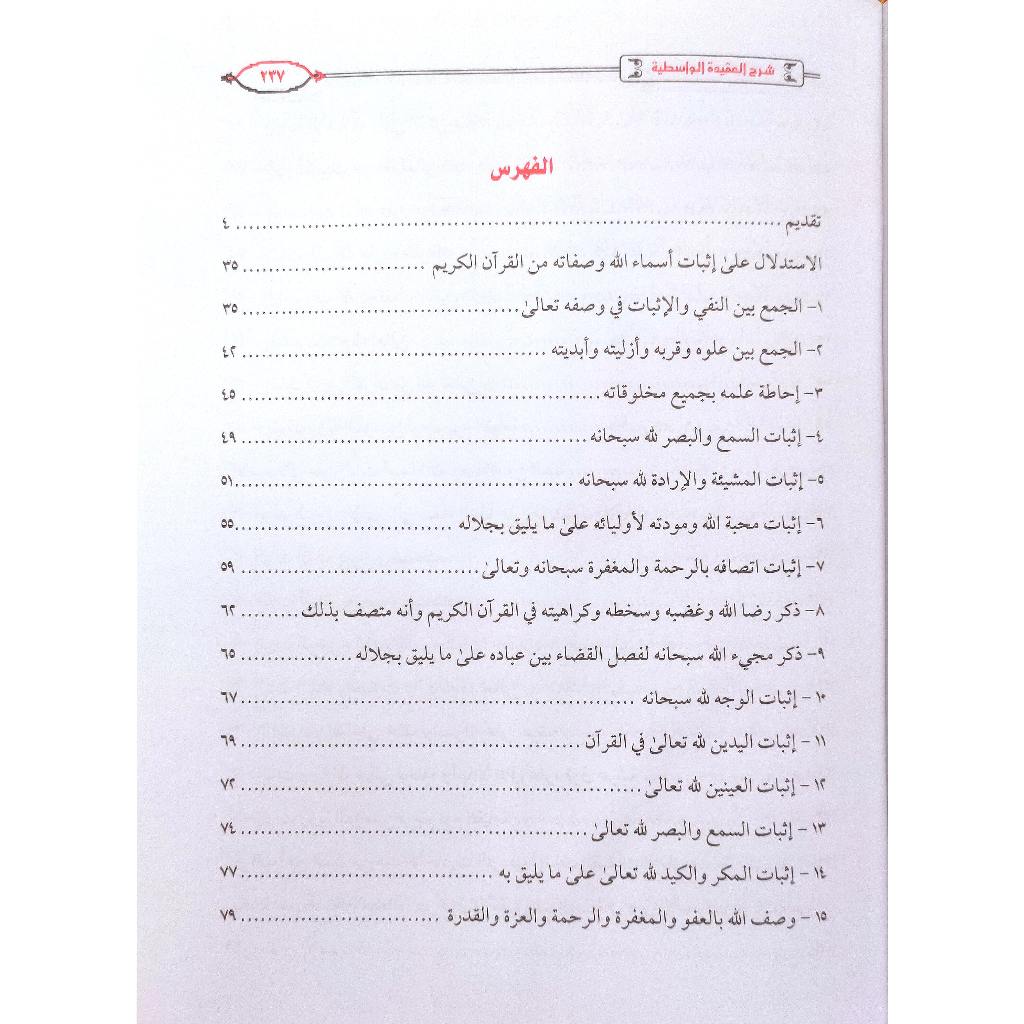 شرح العقيدة الواسطية
٢٣٧
الفهرس
تقديم ................................................................ ٤
الاستدلال علىٰ إثبات أسماء الله وصفاته من القرآن الكريم ............................ ٣٥
١- الجمع بين النفي والإثبات في وصفه تعالىٰ.......................................... ٣٥
٢- الجمع بين علوه وقربه وأزليته وأبديته ............................................... ٤٢
٣- إحاطة علمه بجميع مخلوقاته....................................................... ٤٥
٤- إثبات السمع والبصر لله سبحانه..................................................... ٤٩
٥- إثبات المشيئة والإرادة لله سبحانه ....................................................٥١
٦- إثبات محبة الله ومودته لأوليائه علىٰ ما يليق بجلاله .................................٥٥
٧- إثبات اتصافه بالرحمة والمغفرة سبحانه وتعالىٰ..................................... ٥٩
٨- ذكر رضا الله وغضبه وسخطه وكراهيته في القرآن الكريم وأنه متصف بذلك......... ٦٢
٩- ذكر مجيء الله سبحانه لفصل القضاء بين عباده علىٰ ما يليق بجلاله................. ٦٥
١٠- إثبات الوجه لله سبحانه ............................................................٦٧
١١- إثبات اليدين لله تعالىٰ في القرآن .................................................... ٦٩
١٢- إثبات العينين لله تعالىٰ............................................................. ٧٢
١٣- إثبات السمع والبصر لله تعالىٰ...................................................... ٧٤
١٤- إثبات المكر والكيد لله تعالىٰ علىٰ ما يليق به .......................................٧٧
١٥- وصف الله بالعفو والمغفرة والرحمة والعزة والقدرة ............................... ٧٩